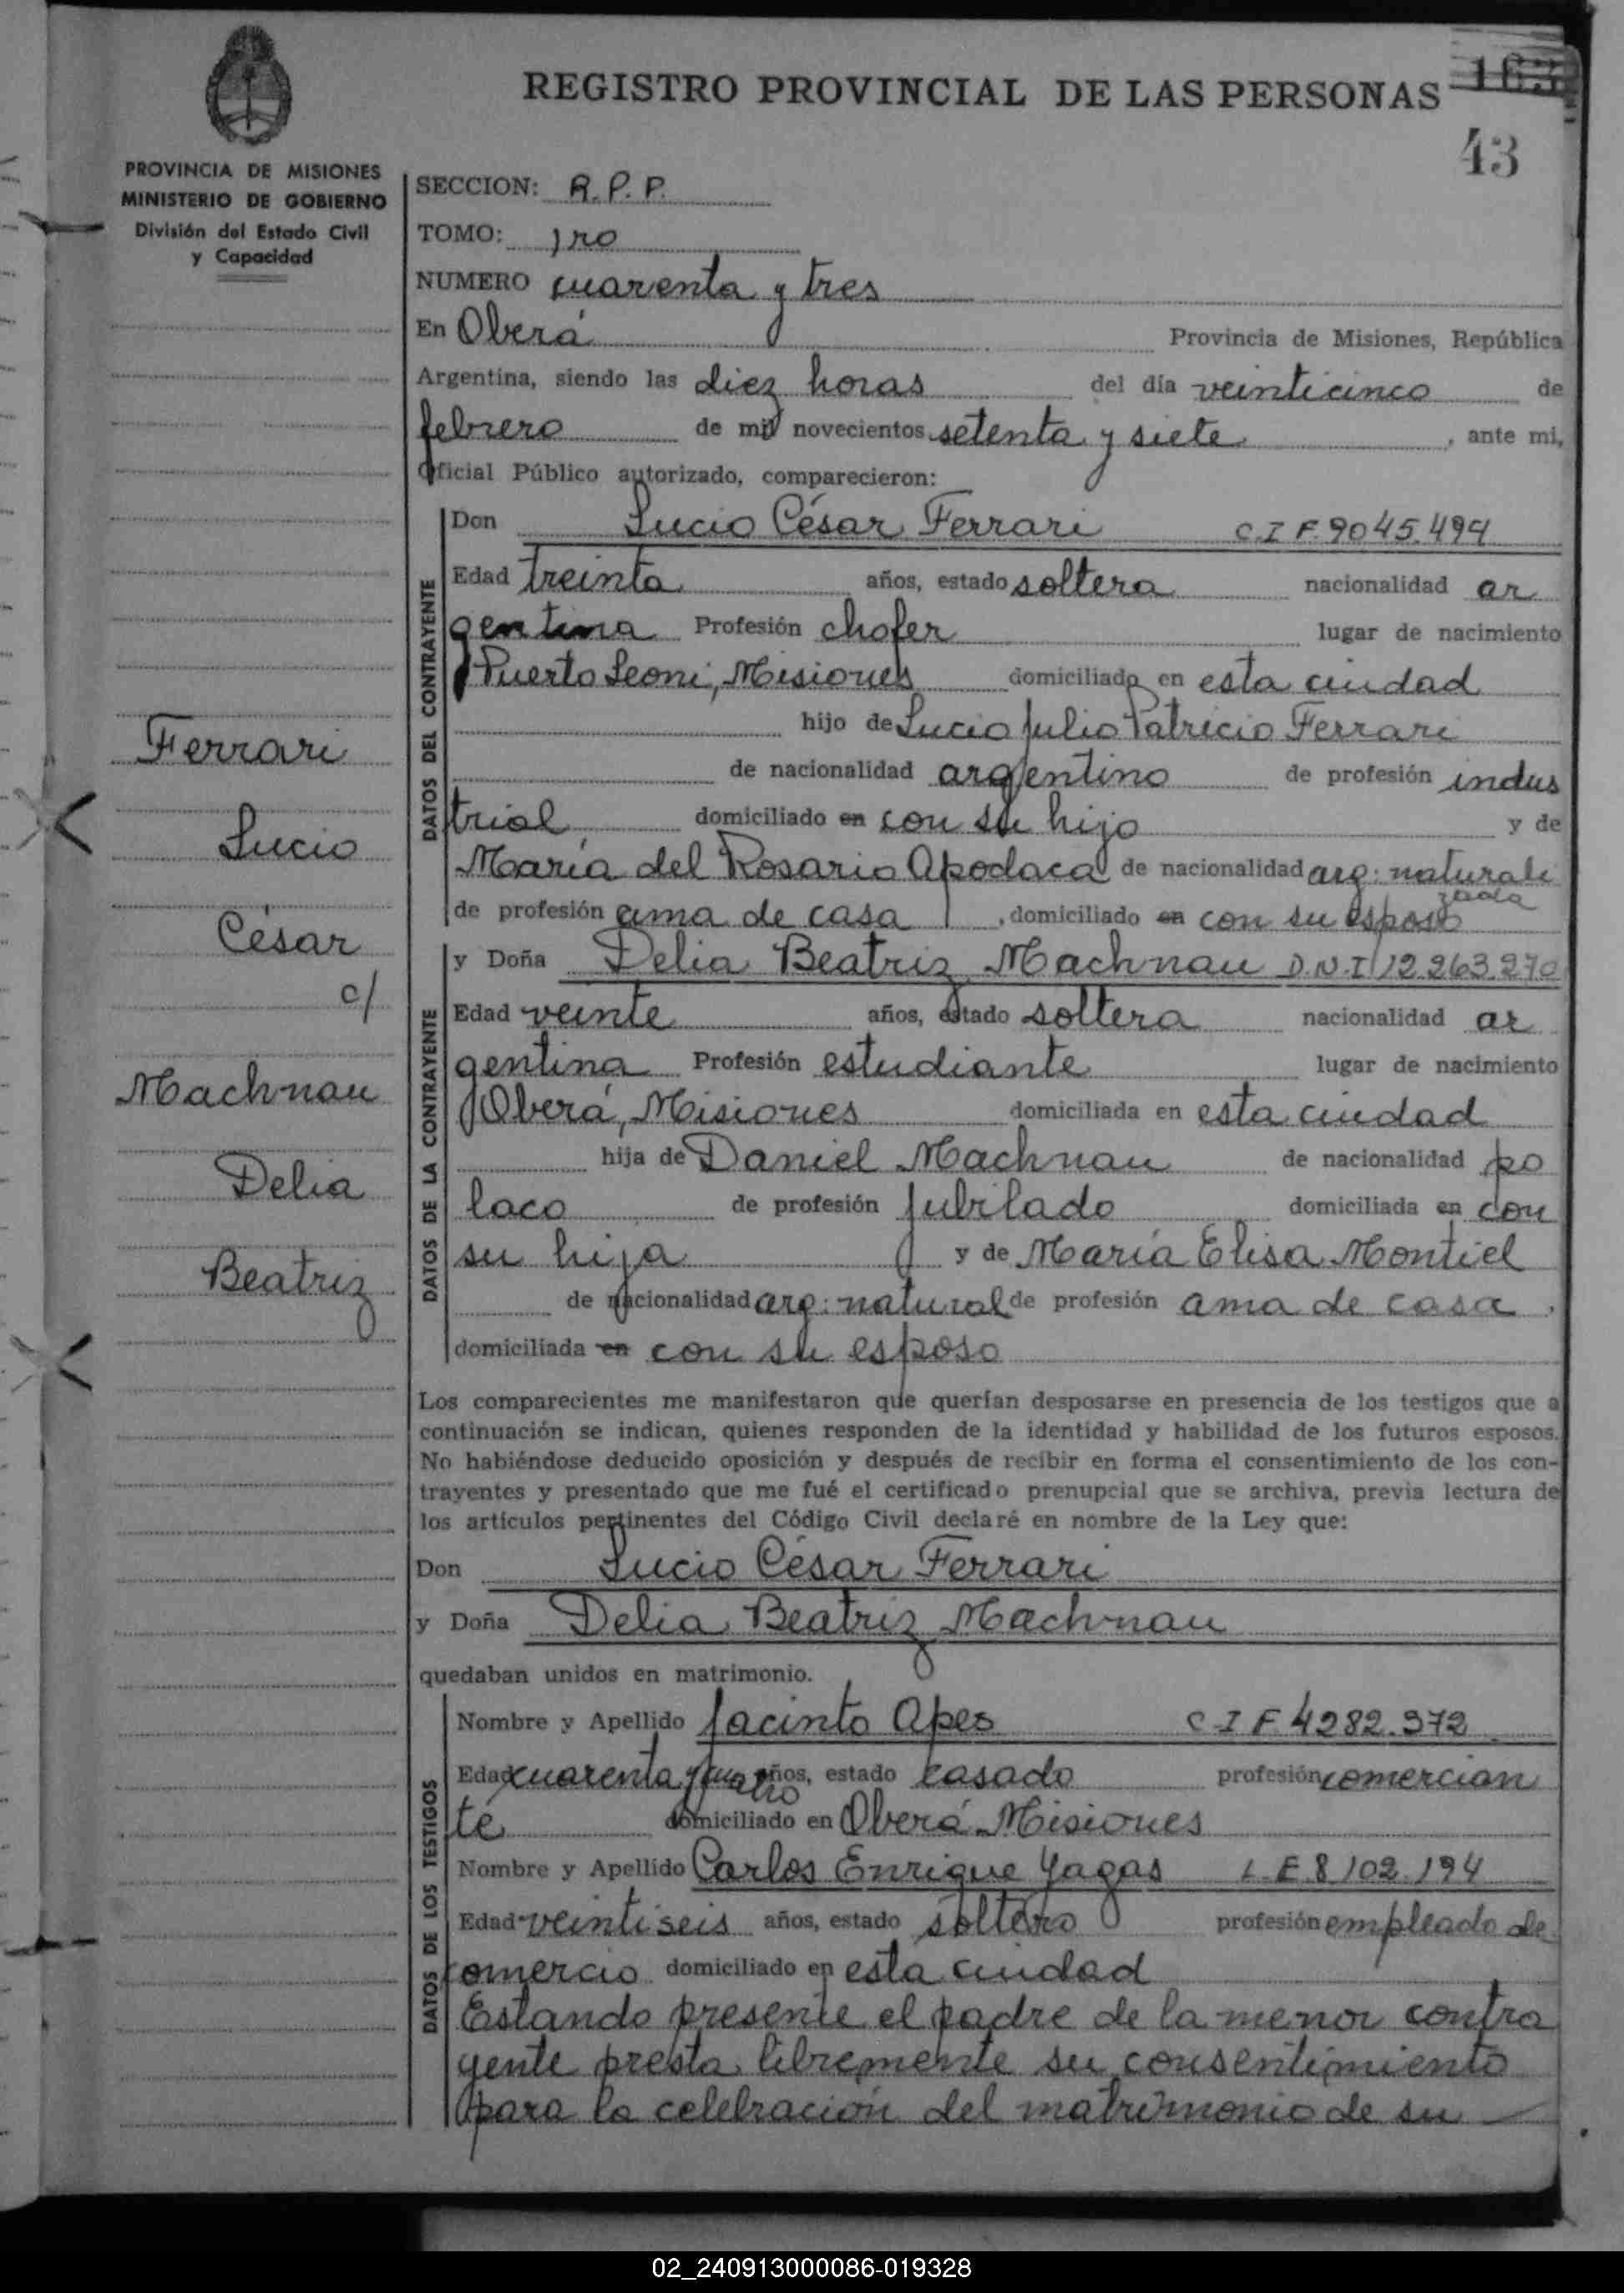 REGISTRO PROVINCIAL DE LAS PERSONAS
163
43
PROVINCIA DE MISIONES
MINISTERIO DE GOBIERNO
División del Estado Civil
y Capacidad
SECCION: R.P.P.
TOMO: 1ro
NUMERO cuarenta y tres
En Oberá Provincia de Misiones, República
Argentina, siendo las diez horas del día veinticinco de
febrero de mil novecientos setenta y siete, ante mi,
Oficial Público autorizado, comparecieron:
DATOS DEL CONTRAYENTE
Don Lucio César Ferrari C.I.F. 9045.494
Edad treinta años, estado soltera nacionalidad ar
gentina Profesión chofer lugar de nacimiento
Puerto Leoni, Misiones domiciliado en esta ciudad
hijo de Lucio Julio Patricio Ferrari
de nacionalidad argentino de profesión indus
trial domiciliado en con su hijo y de
María del Rosario Apodaca de nacionalidad arg: naturali
zada
de profesión ama de casa, domiciliado en con su esposo
DATOS DE LA CONTRAYENTE
y Doña Delia Beatriz Machnau D.N.I 12.263.270
Edad veinte años, estado soltera nacionalidad ar
gentina Profesión estudiante lugar de nacimiento
Oberá, Misiones domiciliada en esta ciudad
hija de Daniel Machnau de nacionalidad po
laco de profesión jubilado domiciliada en con
su hija y de María Elisa Montiel
de nacionalidad arg: natural de profesión ama de casa,
domiciliada en con su esposo
Ferrari
Lucio
César
c/
Machnau
Delia
Beatriz
Los comparecientes me manifestaron que querían desposarse en presencia de los testigos que a
continuación se indican, quienes responden de la identidad y habilidad de los futuros esposos.
No habiéndose deducido oposición y después de recibir en forma el consentimiento de los con-
trayentes y presentado que me fué el certificado prenupcial que se archiva, previa lectura de
los artículos pertinentes del Código Civil declaré en nombre de la Ley que:
Don Lucio César Ferrari
y Doña Delia Beatriz Machnau
quedaban unidos en matrimonio.
DATOS DE LOS TESTIGOS
Nombre y Apellido Jacinto Apes C.I.F. 4282.372
Edad cuarenta y cuatro años, estado casado profesión comercian
te domiciliado en Oberá Misiones
Nombre y Apellido Carlos Enrique Yagas L.E. 8102.194
Edad veintiseis años, estado soltero profesión empleado de
comercio domiciliado en esta ciudad
Estando presente el padre de la menor contra
yente presta libremente su consentimiento
para la celebración del matrimonio de su
02_240913000086-019328